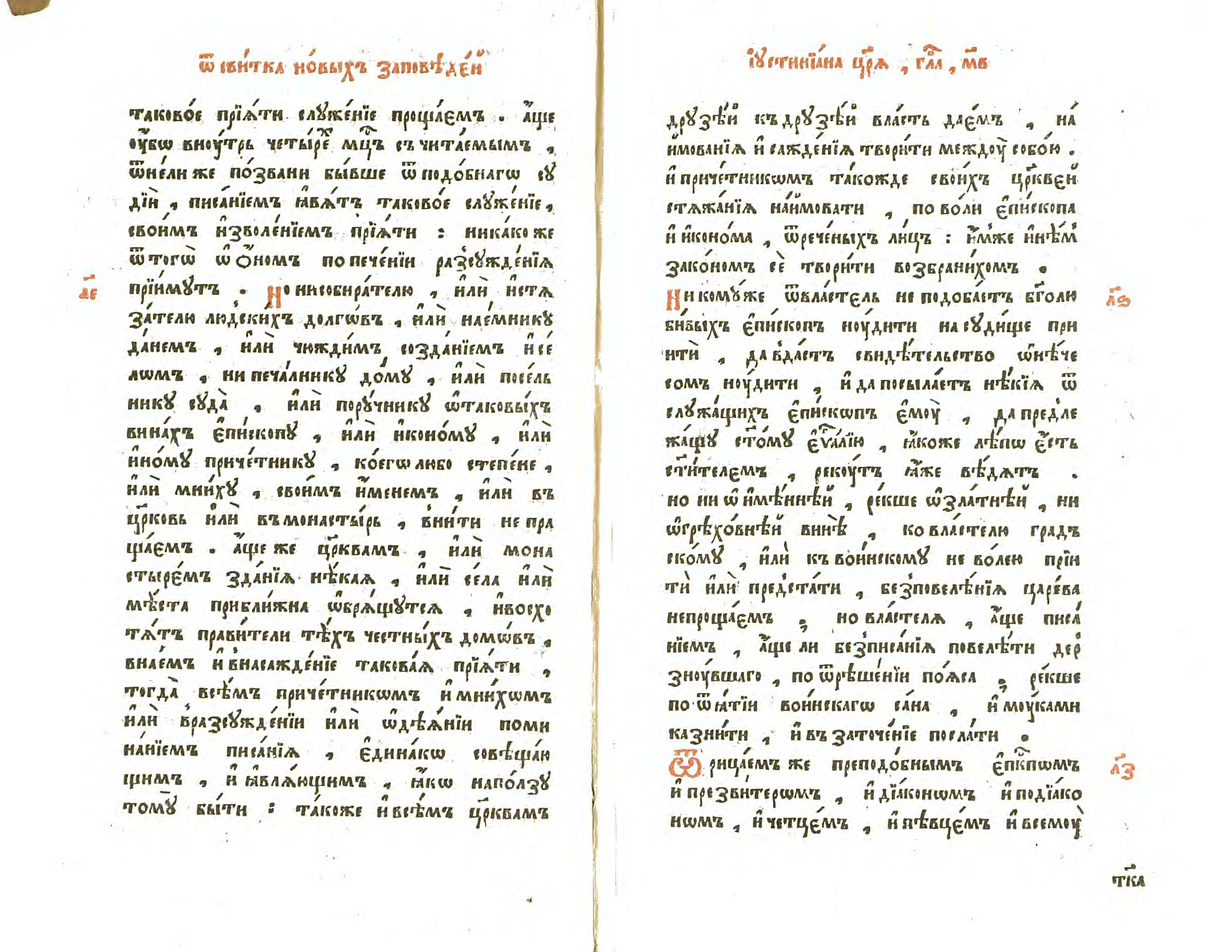 ѿ сви́тка но́выхъ за́повѣде́й
таково́е прїѧ́ти служе́нїе проща́емъ . а́ще
ѹ҆́бѡ внѹ́трь четы́ре мц҃ъ съчита́емымъ ,
ѿне́ли же по́звани бы́вше ѿ подо́бнагѡ сѹ
дїи̂ , писа́нїемъ ꙗ҆вѧ́тъ таково́е служе́нїе ,
свои́мъ и҆зволе́нїемъ прїѧ́ти : никако́же
ѿ тогѡ̀ ѡ҆ ѻ҆́номъ попече́нїи разсужде́нїѧ
прїи́мутъ . Но нисобира́телю , и҆лѝ и҆стѧ
л҃е
за́телю людски́хъ долгѡ́въ , и҆лѝ нае́мнику
да́нем , и҆лѝ чю́ждимъ созда́нїемъ и҆ се́
лѡмъ , ни печа́лнику до́му , и҆лѝ посе́ль
нику суда̀ , и҆лѝ пору́чнику ѡ҆таковы́хъ
вина́хъ є҆пи́скопу , и҆лѝ и҆коно́му , и҆лѝ
и҆но́му приче́тнику , ко́егѡ либо степе́не ,
и҆лѝ мни́ху , свои́мъ и҆́менемъ , и҆лѝ въ
цр҃ковь и҆лѝ въ монасты́рь , вни́ти не пра
ща́ем . а́ще же цр҃квамъ , и҆лѝ мона
стыре́мъ зда́нїѧ нѣ́каѧ , и҆лѝ се́ла и҆лѝ
мѣ́ста прибли́жна ѡ҆брѧ́щутсѧ , и҆восхо
тѧ́тъ прави́тели тѣ́хъ че́стныхъ домѡ́въ ,
внае́мъ и҆ внасажде́нїе такова́ѧ прїѧ́ти ,
тогда̀ всѣ́мъ приче́тникѡмъ и҆ мни́хѡмъ
и҆лѝ вразсужде́нїи и҆лѝ ѡ҆дѣѧ́нїи поми
на́нїемъ писа́нїѧ , є҆дина́кѡ совѣща́ю
щимъ , и҆ ꙗ҆влѧ́ющимъ , ꙗ҆́кѡ напо́лзу
томꙋ̀ бы́ти : та́коже и҆ всѣ́мъ цр҃квамъ
і҆ѹстинїа́на цр҃ѧ , гл҃а , м҃в
дрѹзѣ́й къ дрѹзѣ́й вла́сть дае́мъ , на́
и҆мованїѧ и҆ сажде́нїѧ твори́ти междѹ̀ собо́ю .
и҆ приче́тникѡмъ та́кожде свои́хъ цр҃кве́й
стѧжа́нїѧ наи́мовати , по во́ли є҆пи́скопа
и҆ и҆коно́ма , ѿрече́ныхъ ли́цъ : и҆́мже и҆нѣ́м
зако́номъ сѐ твори́ти возбрани́хомъ .
Ни кому́же ѿвла́стель не подоба́етъ бг҃олю
л҃ѕ
би́выхъ є҆пи́скопъ нѹ́дити на сѹди́ще при
ити̂ , да вда́стъ свидѣ́тельство ѡ҆нѣ́че
сомъ нѹ́дити , и҆ да посыла́етъ нѣ́кїѧ ѿ
слѹжа́щихъ є҆пи́скѡпъ є҆мѹ̀ , да предле
жа́щу ст҃о́му є҆ѵа́лїю , ꙗ҆́коже лѣ́пѡ є҆́сть
ст҃и́телемъ , рекѹ́тъ ꙗ҆́же вѣ́дѧтъ .
но ни ѡ҆ и҆мѣ́ннѣй , ре́кше ѡ҆зла́тнѣй , ни
ѡ҆грѣхо́внѣй винѣ̀ , ко власте́лю гра́дъ
ско́му , и҆лѝ къ во́инскому не во́лею прїи
тѝ и҆лѝ предста́ти , безповелѣ́нїѧ царе́ва
непроща́емъ ; но власте́лѧ , а́ще писа́
нїемъ , а́ще ли безписа́нїѧ повелѣ́ти дер
знѹ́вшаго , по ѿрѣше́нїи по́ѧса ; ре́кше
по ѿѧ́тїи во́инскагѡ са́на , и҆ мѹ́ками
казни́ти , и҆ въ заточе́нїе посла́ти .
Ѿрица́емъ же преподо́бнымъ є҆пк҃пѡмъ
л҃з
и҆ презви́терѡмъ , и҆ дїа́конѡмъ и҆ подїа́ко
нѡмъ , и҆ четце́мъ , и҆ пѣвце́мъ и҆ всемѹ̀
тк҃а